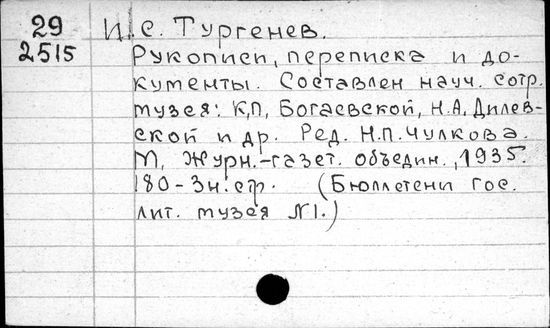 29 И. С. Тургенев.
2515 Рукописи, переписка и до-
кументы. Составлен науч. сотр.
музея: К.П. Богаевской, Н.А. Дилев-
ской и др. Ред. Н.П. Чулкова.
М, Журн.-газет. объедин., 1935.
180-3н. стр. (Бюллетени гос.
лит. музея №1.)